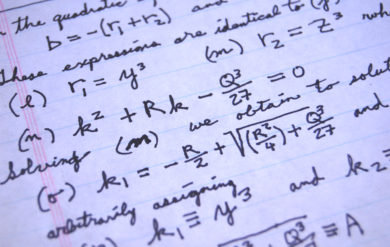 the quadratic
b = -(r₁ + r₂) and
These expressions are identical to
(l) r₁ = y³ (m) r₂ = z³ wh
(n) k² + Rk - Q³/27 = 0
Solving (n) we obtain to solut
(o) k₁ = -R/2 + √((R²/4) + Q³/27 and
arbitrarily assigning
k₁ ≡ y³ and k₂ ≡
Q³/27 ≡ A